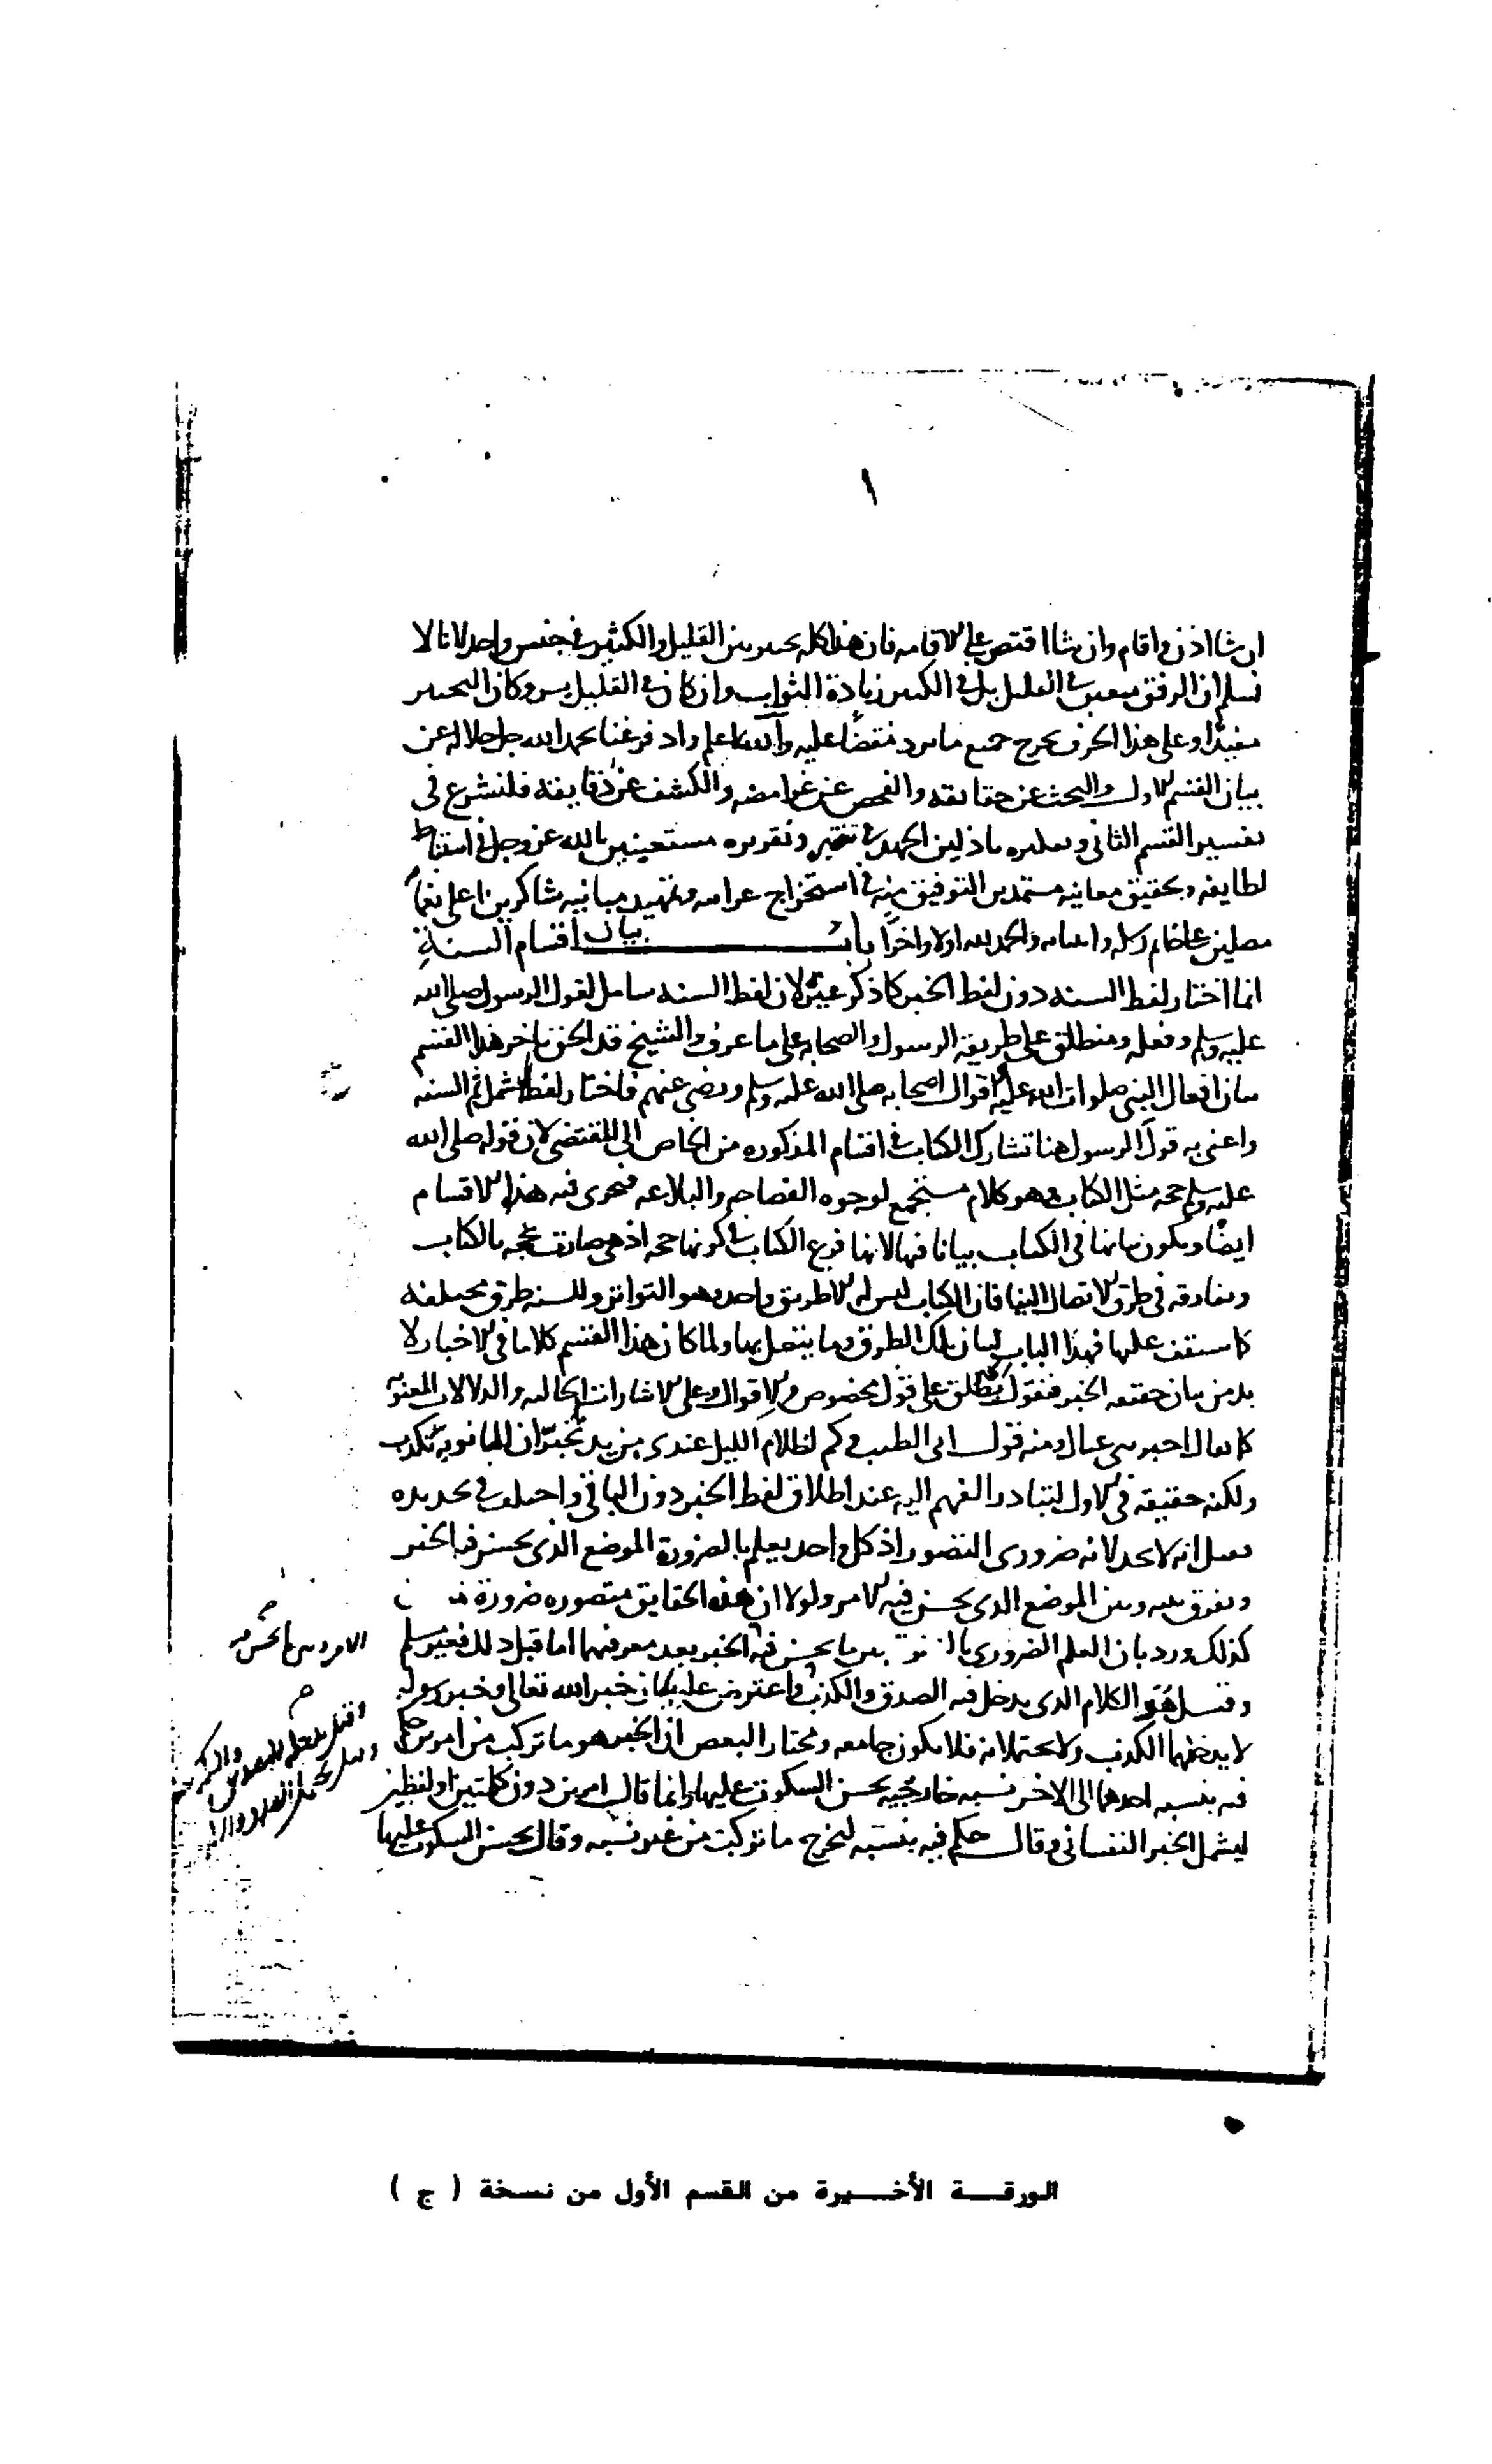 ١
ان شا اذن واقام وان شا اقتصر على الاقامه فان هذا كله تخيير بين القليل والكثير في جنس واحد لانا لا
نسلم ان الرفق متعين في القليل بل في الكثير زيادة الثواب وان كان في القليل يسر وكان التخيير
مفيدا وعلى هذا الحرف يخرج جميع ما يرد نقضا عليه والله اعلم واذ فرغنا بحمد الله جل جلاله عن
بيان القسم الاول والبحث عن حقايقه والفحص عن غوامضه والكشف عن دقايقه فلنشرع في
تفسير القسم الثاني باذلين الجهد في وتقريره مستعينين بالله عز وجل في استنباط
لطايفه وتحقيق معانيه مستمدين التوفيق منه في استخراج وتمهيد مبانيه شاكرين على
مصلين على خاتم رسله والحمد لله اولا واخرا باب بيان اقسام السنة
انما اختار لفظ السنه دون لفظ الخبر كما ذكر غيره لان لفظ السنه شامل لقول الرسول صلى الله
عليه وسلم وفعله ومنطلق على طريقة الرسول والصحابه على ما عرف والشيخ قد الحق باخر هذا القسم
بيان افعال النبي صلوات الله عليه واقوال اصحابه صلى الله عليه وسلم ورضي عنهم فاختار لفظا يشمل ثم السنه
واعني به قول الرسول هنا تشارك الكتاب في اقسام المذكوره من الخاص الى المقتضى لان قوله صلى الله
عليه وسلم حجه مثل الكتاب وهو كلام مستجمع لوجوه الفصاحه والبلاغه فيجري فيه هذا الاقسام
ايضا ويكون بيانها في الكتاب بيانا فيها لانها فرع الكتاب في كونها حجه اذ هي صارت حجه بالكتاب
وتفارقه في طرق الاتصال الينا فان الكتاب ليس له الا طريق واحد وهو التواتر وللسنه طرق مختلفه
كما ستقف عليها فهذا الباب لبيان تلك الطرق وما يتصل بها ولما كان هذا القسم كلاما في الاخبار لا
بد من بيان حقيقه الخبر فنقول يطلق على قول مخصوص من الاقوال وعلى الاشارات الحاليه والدلالات المعنويه
كما يقال اخبرتني عيناك ومنه قول ابي الطيب وكم لظلام الليل عندي من يد تخبر ان المانويه تكذب
ولكنه حقيقه في الاول لتبادر الفهم اليه عند اطلاق لفظ الخبر دون الباقي واختلف في تحديده
فقيل انه لا يحد لانه ضروري التصور اذ كل واحد يعلم بالضرورة الموضع الذي يحسن فيه الخبر
ويفرق بينه وبين الموضع الذي يحسن فيه الامر ولولا ان هذه الحقايق متصوره ضرورة
كذلك ورد بان العلم الضروري بين ما يحسن فيه الخبر بعد معرفتهما اما قبل ذلك فغير مسلم
وقيل هو الكلام الذي يدخل فيه الصدق والكذب واعترض عليه بان خبر الله تعالى وخبر رسوله
لا يدخلهما الكذب ولا يحتملانه فلا يكون جامعه ومختار البعض ان الخبر هو ما تركب من امرين حكم
فيه بنسبه احدهما الى الاخر نسبه خارجيه يحسن السكوت عليها وانما قال امرين دون كلمتين او لفظين
ليشمل الخبر النفساني وقال حكم فيه بنسبه ليخرج ما تركب من غير نسبه وقال يحسن السكوت عليها
الورقـة الأخـيرة من القسم الأول من نسخة ( ج )